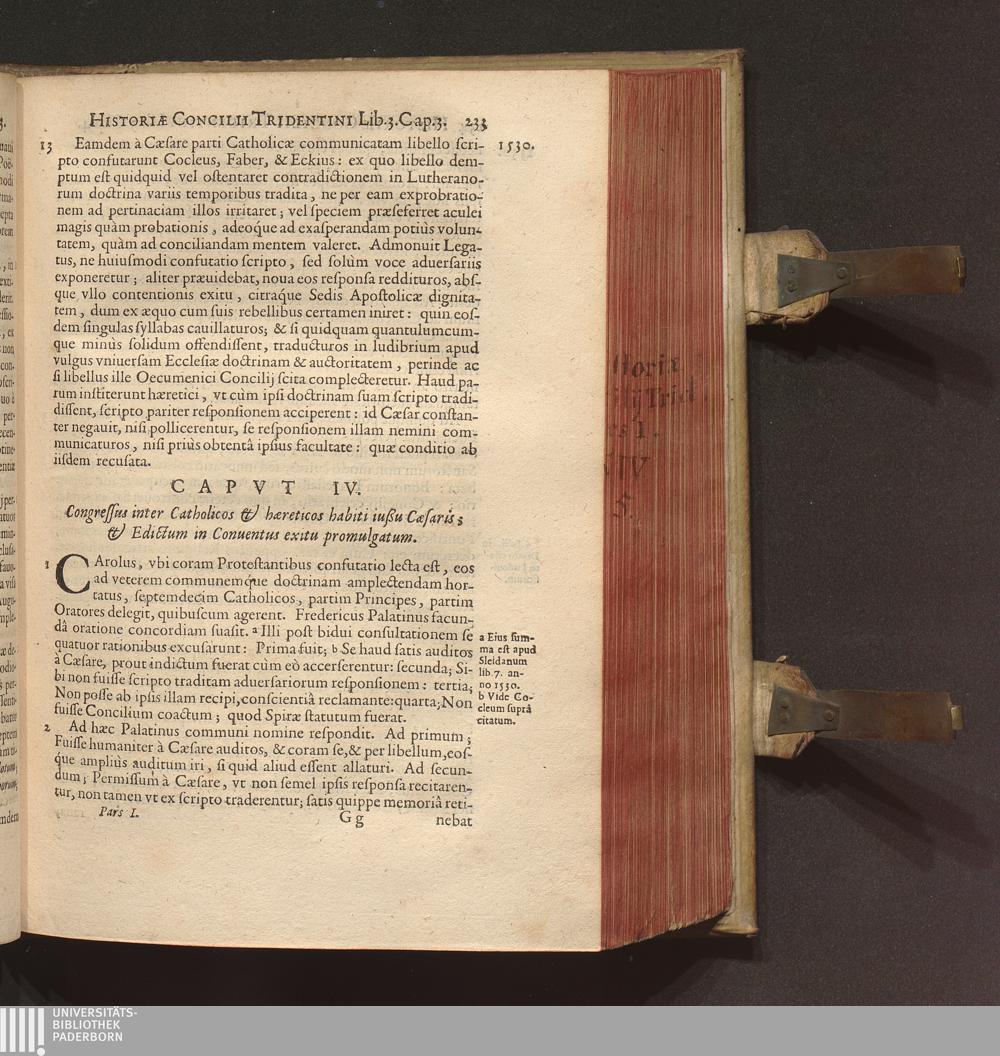 HISTORIÆ CONCILII TRIDENTINI Lib.3.Cap.3. 233
13 Eamdem à Cæsare parti Catholicæ communicatam libello scri- 1530.
pto confutarunt Cocleus, Faber, & Eckius: ex quo libello dem-
ptum est quidquid vel ostentaret contradictionem in Lutherano-
rum doctrina variis temporibus tradita, ne per eam exprobratio-
nem ad pertinaciam illos irritaret; vel speciem præseferret aculei
magis quàm probationis, adeoq́ue ad exasperandam potiùs volun-
tatem, quàm ad conciliandam mentem valeret. Admonuit Lega-
tus, ne huiusmodi confutatio scripto, sed solùm voce aduersariis
exponeretur; aliter præuidebat, noua eos responsa redditutos, abs-
que vllo contentionis exitu, citraq́ue Sedis Apostolicæ dignita-
tem, dum ex æquo cum suis rebellibus certamen iniret: quin eos-
dem singulas syllabas cauillaturos; & si quidquam quantulumcum-
que minùs solidum offendissent, traducturos in ludibrium apud
vulgus vniuersam Ecclesiæ doctrinam & auctoritatem, perinde ac
si libellus ille Oecumenici Concilij scita complecteretur. Haud pa-
rum institerunt hæretici, vt cùm ipsi doctrinam suam scripto tradi-
dissent, scripto pariter responsionem acciperent: id Cæsar constan-
ter negauit, nisi pollicerentur, se responsionem illam nemini com-
municaturos, nisi priùs obtentâ ipsius facultate: quæ conditio ab
iisdem recusata.
CAPVT IV.
Congressus inter Catholicos & hæreticos habiti iussu Cæsaris;
& Edictum in Conuentus exitu promulgatum.
1 CArolus, vbi coram Protestantibus confutatio lecta est, eos
ad veterem communemq́ue doctrinam amplectendam hor-
tatus, septemdecim Catholicos, partim Principes, partim
Oratores delegit, quibuscum agerent. Fredericus Palatinus facun-
dâ oratione concordiam suasit. a Illi post bidui consultationem se
quatuor rationibus excusarunt: Prima fuit; b Se haud satis auditos
à Cæsare, prout indictum fuerat cùm eò accerserentur: secunda; Si-
bi non fuisse scripto traditam aduersariorum responsionem: tertia;
Non posse ab ipsis illam recipi, conscientiâ reclamante: quarta; Non
fuisse Concilium coactum; quod Spiræ statutum fuerat.
a Eius sum-
ma est apud
Sleidanum
lib. 7. an-
no 1530.
b Vide Co-
cleum suprà
citatum.
2 Ad hæc Palatinus communi nomine respondit. Ad primum;
Fuisse humaniter à Cæsare auditos, & coram se, & per libellum, eos-
q́ue ampliùs auditum iri, si quid aliud essent allaturi. Ad secun-
dum; Permissum à Cæsare, vt non semel ipsis responsa recitaren-
tur, non tamen vt ex scripto traderentur; satis quippe memoriâ reti-
Pars I. Gg nebat
UNIVERSITÄTS-
BIBLIOTHEK
PADERBORN